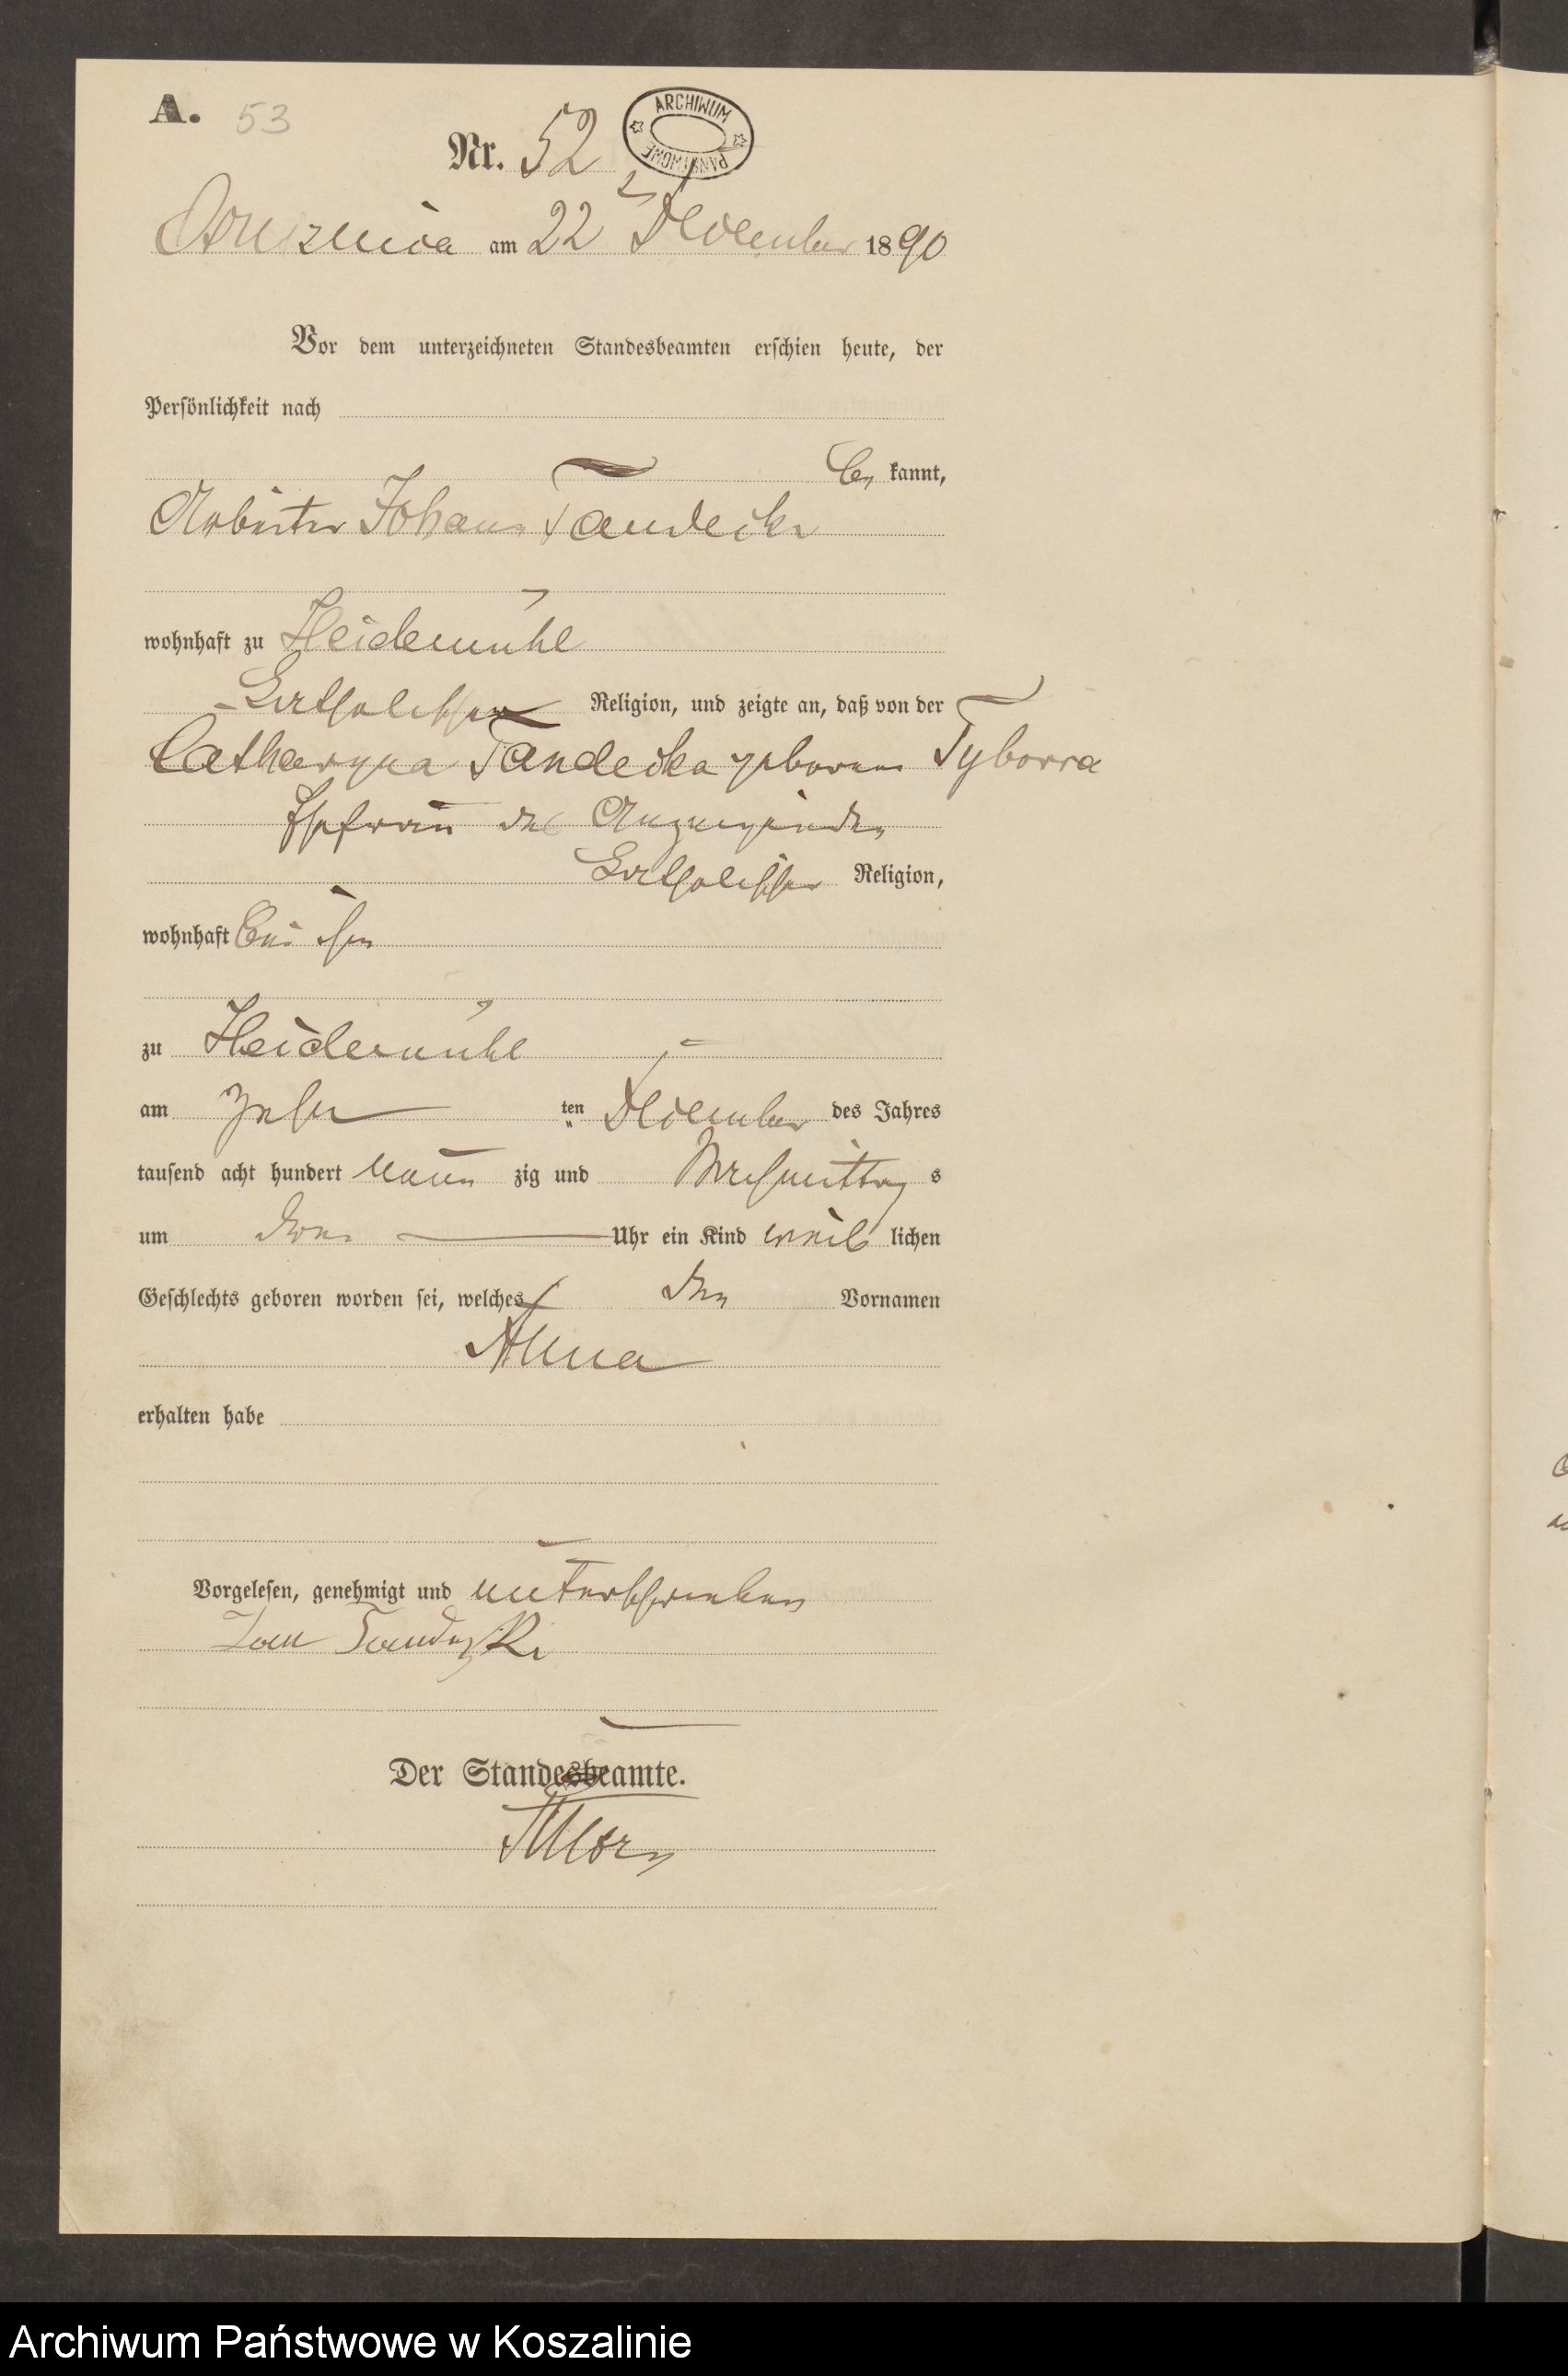 A. 53
Nr. 52
ARCHIWUM PAŃSTWOWE
am 22 December 1890
Vor dem unterzeichneten Standesbeamten erschien heute, der
Persönlichkeit nach
be kannt,
Arbeiter Johann Tandecki
wohnhaft zu Heidemühl
katholischer Religion, und zeigte an, daß von der
Catharyna Tandecka geborene Tyborra
Ehefrau des Anzeigenden
katholischer Religion,
wohnhaft bei ihm
zu Heidemühl
am zehn ten December des Jahres
tausend acht hundert neun zig und Nachmittag s
um Uhr ein Kind weib lichen
Geschlechts geboren worden sei, welches den Vornamen
Anna
erhalten habe
Vorgelesen, genehmigt und unterschrieben
Jan
Der Standesbeamte.
Archiwum Państwowe w Koszalinie